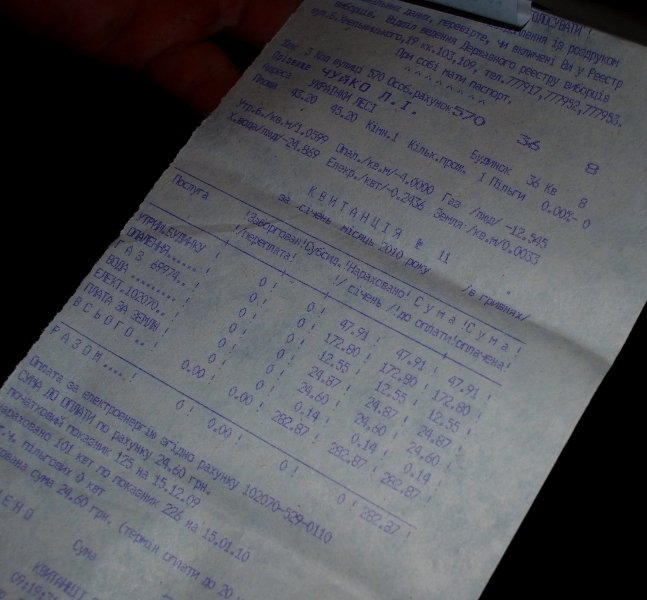 ГОЛОСУВАТИ !
нальних даних, перевірте, чи включені Ви у Реєстр
виборців. Відділ ведення Державного реєстру виборців
вул.Б.Хмельницького,19 кк.103,109, тел.77917,777952,777953.
При собі мати паспорт,
^ ^ ^ ^ ^ ^ ^ ^
570 Особ.рахунок 570
Прізвище ЧУЙКО Л.І.
Адреса УКРАЇНКИ ЛЕСІ Будинок 36 Кв 8
Площа 43.20 45.20 Кімн.1 Кільк.прож. 1 Пільги 0.00%- 0
Утр.б./кв.м/1.0599 Опал./кв.м/-4.0000 Газ /люд/ -12.545
Х.вода/люд/-24.869 Елекр./квт/-0.2436 Земля:/кв.м/0.0033
К В И Т А Н Ц І Я № 11
за січень місяць 2010 року /в гривнях/
Послуга !Заборгован!Субсид.!Нараховано! С у м а !С у м а !
!/переплата! !/ січень /!до оплати!оплачена!
УТРИМ.БУДИНКУ ! 0! 0! 47.91! 47.91! 47.91!
ОПАЛЕННЯ...... ! 0! 0! 172.80! 172.80! 172.80!
Г А З 69974.. ! 0! 0! 12.55! 12.55! 12.55!
ВОДА ......... ! 0! 0! 24.87! 24.87! 24.87!
ЕЛЕКТ.102070.. ! 0! 0! 24.60! 24.60! 24.60!
ПЛАТА ЗА ЗЕМЛЮ ! 0! 0! 0.14! 0.14! 0.14!
В С Ь О Г О .. ! 0.00! 0.00! 282.87! 282.87! 282.87!
Р А З О М .... ! 0! 0.00! 0! 0! 282.87!
Оплата за електроенергію згідно рахунку 102070-529-0110
СУМА ДО ОПЛАТИ по рахунку 24.60 грн.
початковий показник 125 на 15.12.09
нараховано 101 квт по показник 226 на 15.01.10
т.ч. пільгових 0 квт
сума 24.60 грн. (термін оплати до 20
Сума
КВИТАНЦІ